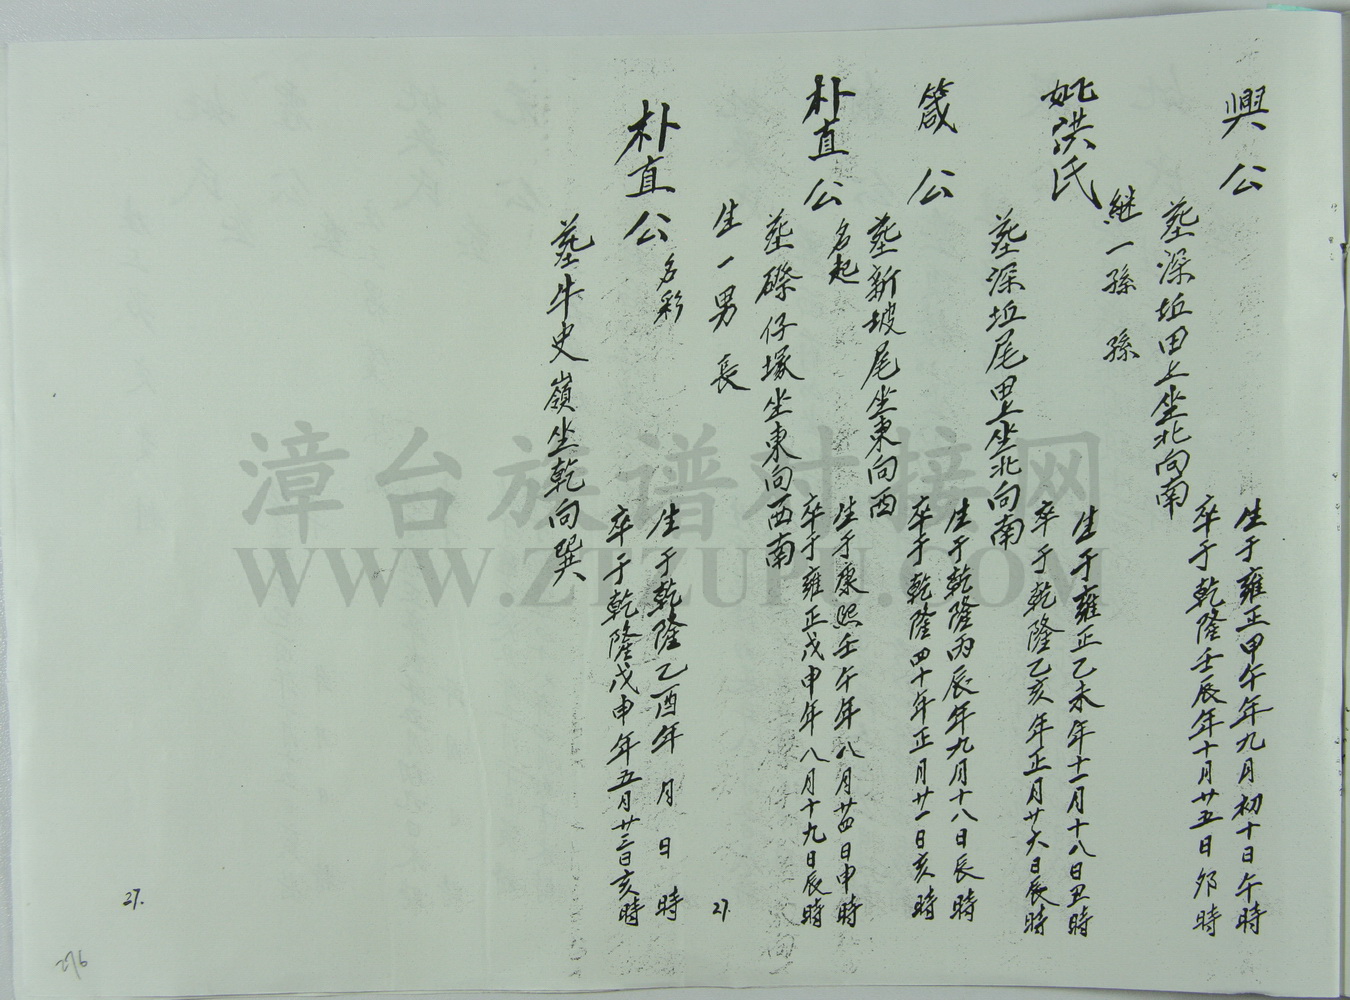 興公
生于雍正甲午年九月初十日午時
卒于乾隆壬辰年十月廿五日卯時
墓深坵田上坐北向南
継一孫 孫
妣洪氏
生于雍正乙未年十一月十八日丑時
卒于乾隆乙亥年正月廿六日辰時
墓深坵尾田上坐北向南
箴公
生于乾隆丙辰年九月十八日辰時
卒于乾隆四十年正月廿一日亥時
墓新坡尾坐東向西
朴直公 名起
生于康熙壬午年八月廿四日申時
卒于雍正戊申年八月十九日辰時
墓磜仔塚坐東向西南
生一男 長
27.
朴直公 名彩
生于乾隆乙酉年 月 日 時
卒于乾隆戊申年五月廿三日亥時
墓牛史嶺坐乾向巽
27.
276
漳台族谱对接网
WWW.ZTZUPU.COM